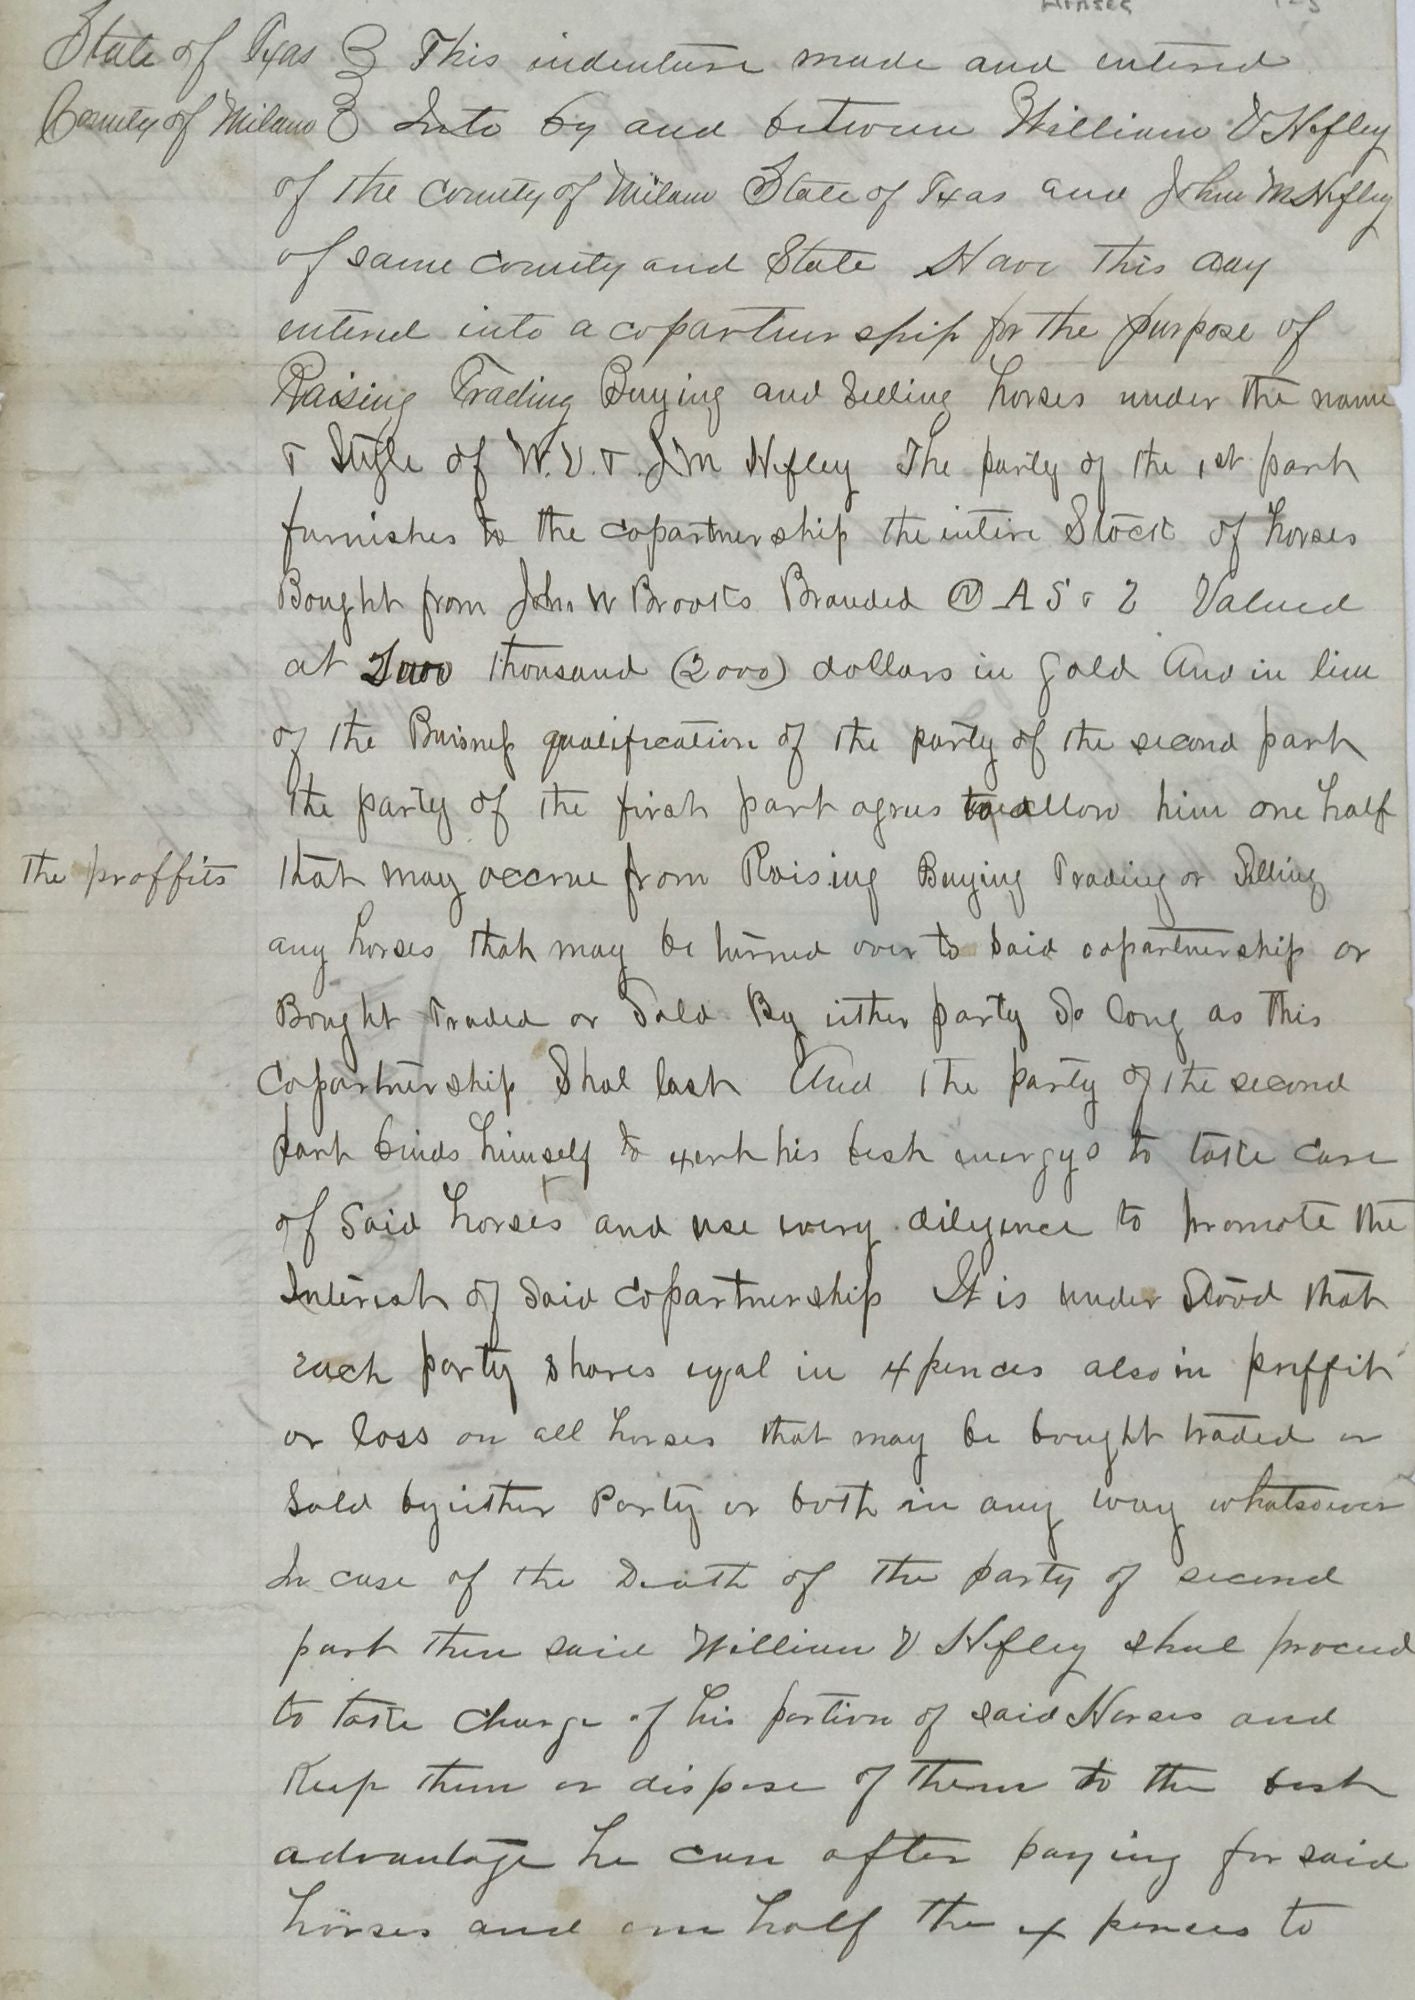 Horses
State of Texas } This indenture made and entered
County of Milam } Into by and between William V Hefley
of the county of Milam State of Texas and John M Hefley
of same county and State Have this day
entered into a copartnership for the purpose of
Raising Trading Buying and Selling horses under the name
& Style of W. V. & J M Hefley The party of the 1st part
furnishes to the copartnership the intire Stock of horses
Bought from John W Brooks Branded A S & 2 Valued
at Two thousand (2000) dollars in gold And in lieu
of the Buisness qualification of the party of the second part
the party of the first part agrees to allow him one half
the proffits that may accrue from Raising Buying Trading or Selling
any horses that may be turned over to said copartnership or
Bought Traded or Sold By either party So long as this
Copartnership Shal last And the party of the second
part binds himself to exert his best energys to take care
of Said horses and use every diligence to promote the
Interest of Said Copartnership It is under Stood that
each party shares eqal in expences also in proffit
or loss on all horses that may be bought traded or
Sold by either Party or both in any way whatsoever
In case of the Death of the party of second
part then said William V Hefley shal proceed
to take charge of his portion of said Horses and
Keep them or dispose of them to the best
advantage he can after paying for said
horses and one half the expences to